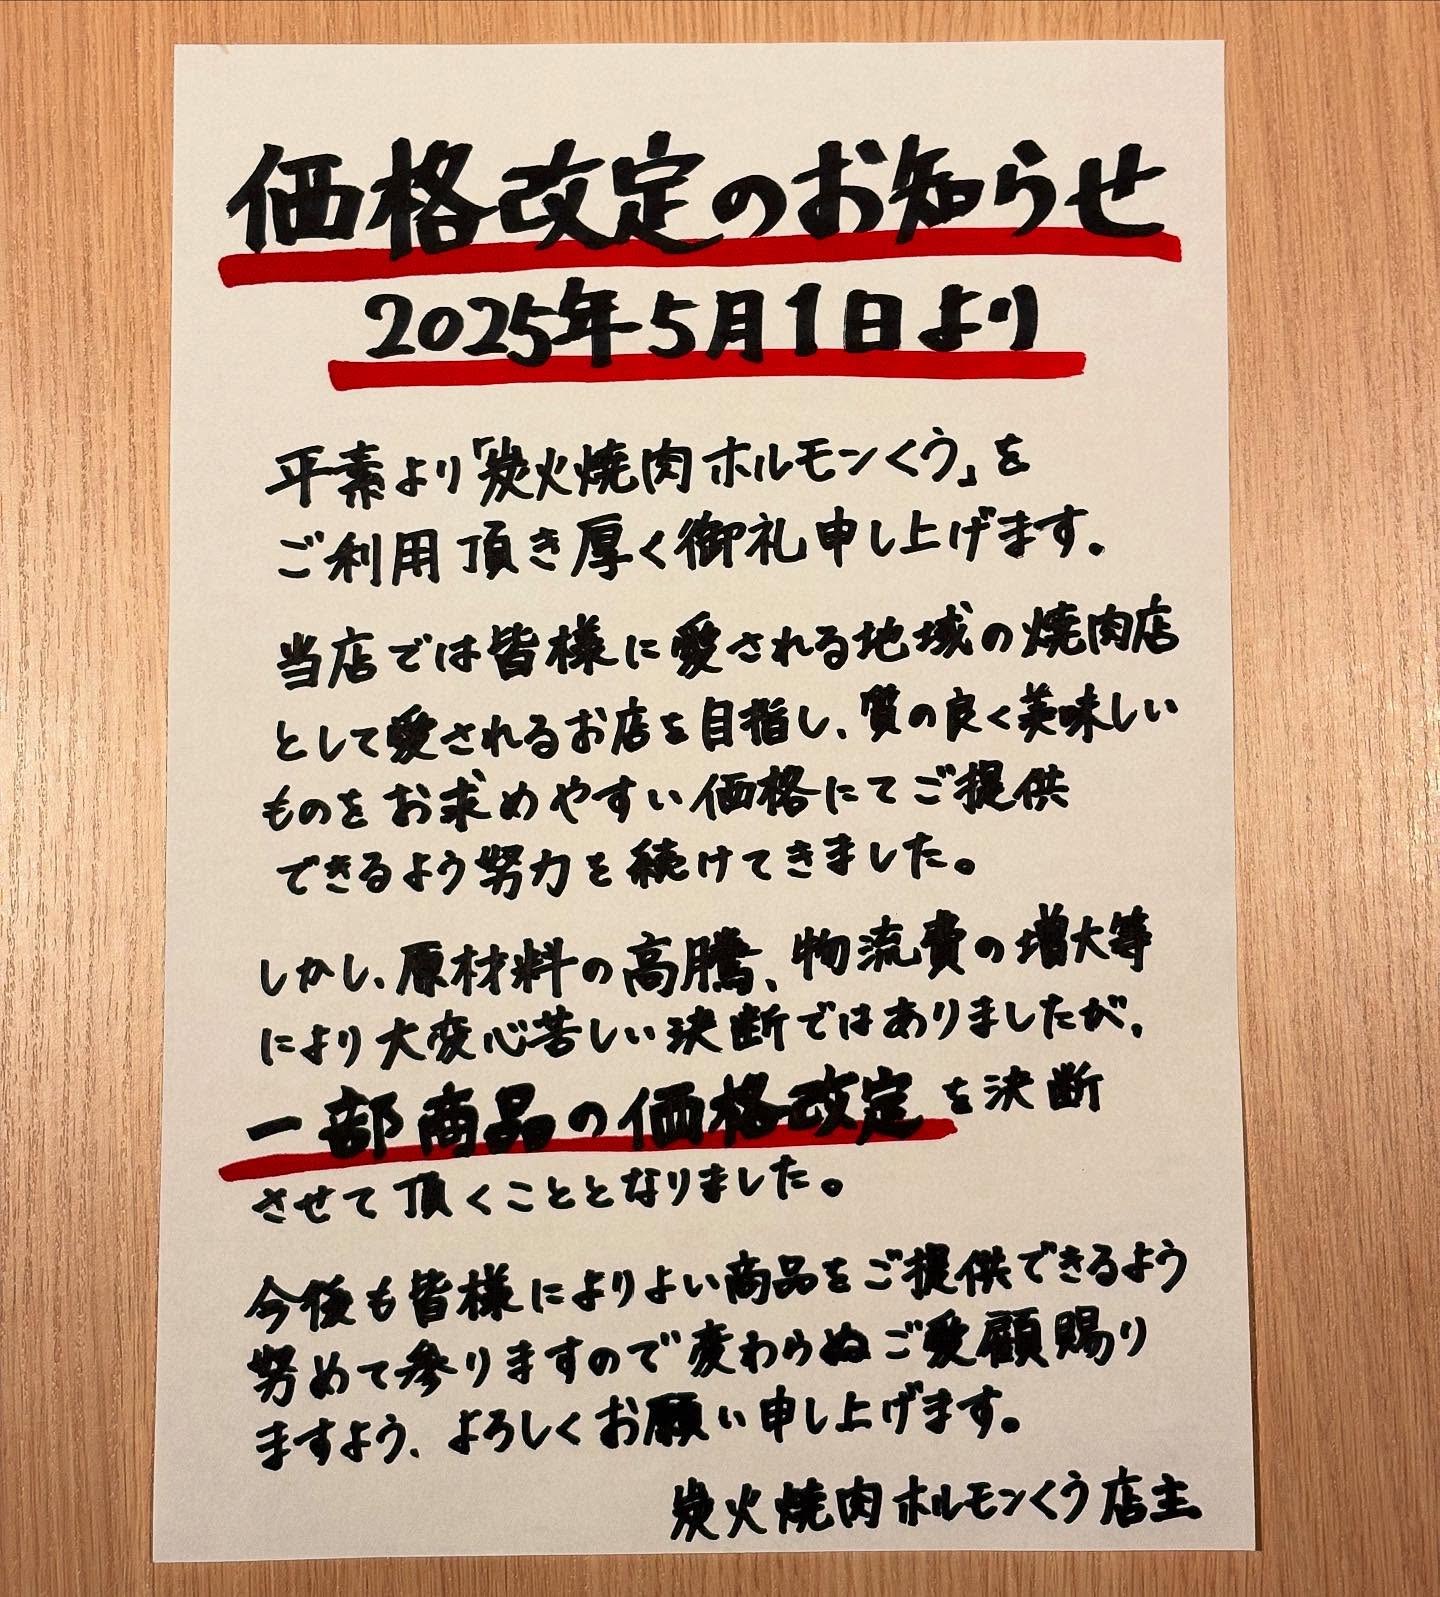 価格改定のお知らせ
2025年5月1日より
平素より「炭火焼肉ホルモンくう」を
ご利用頂き厚く御礼申し上げます。
当店では皆様に愛される地域の焼肉店
として愛されるお店を目指し、質の良く美味しい
ものをお求めやすい価格にてご提供
できるよう努力を続けてきました。
しかし、原材料の高騰、物流費の増大等
により大変心苦しい決断ではありましたが、
一部商品の価格改定を決断
させて頂くこととなりました。
今後も皆様によりよい商品をご提供できるよう
努めて参りますので変わらぬご愛顧賜り
ますよう、よろしくお願い申し上げます。
炭火焼肉ホルモンくう店主